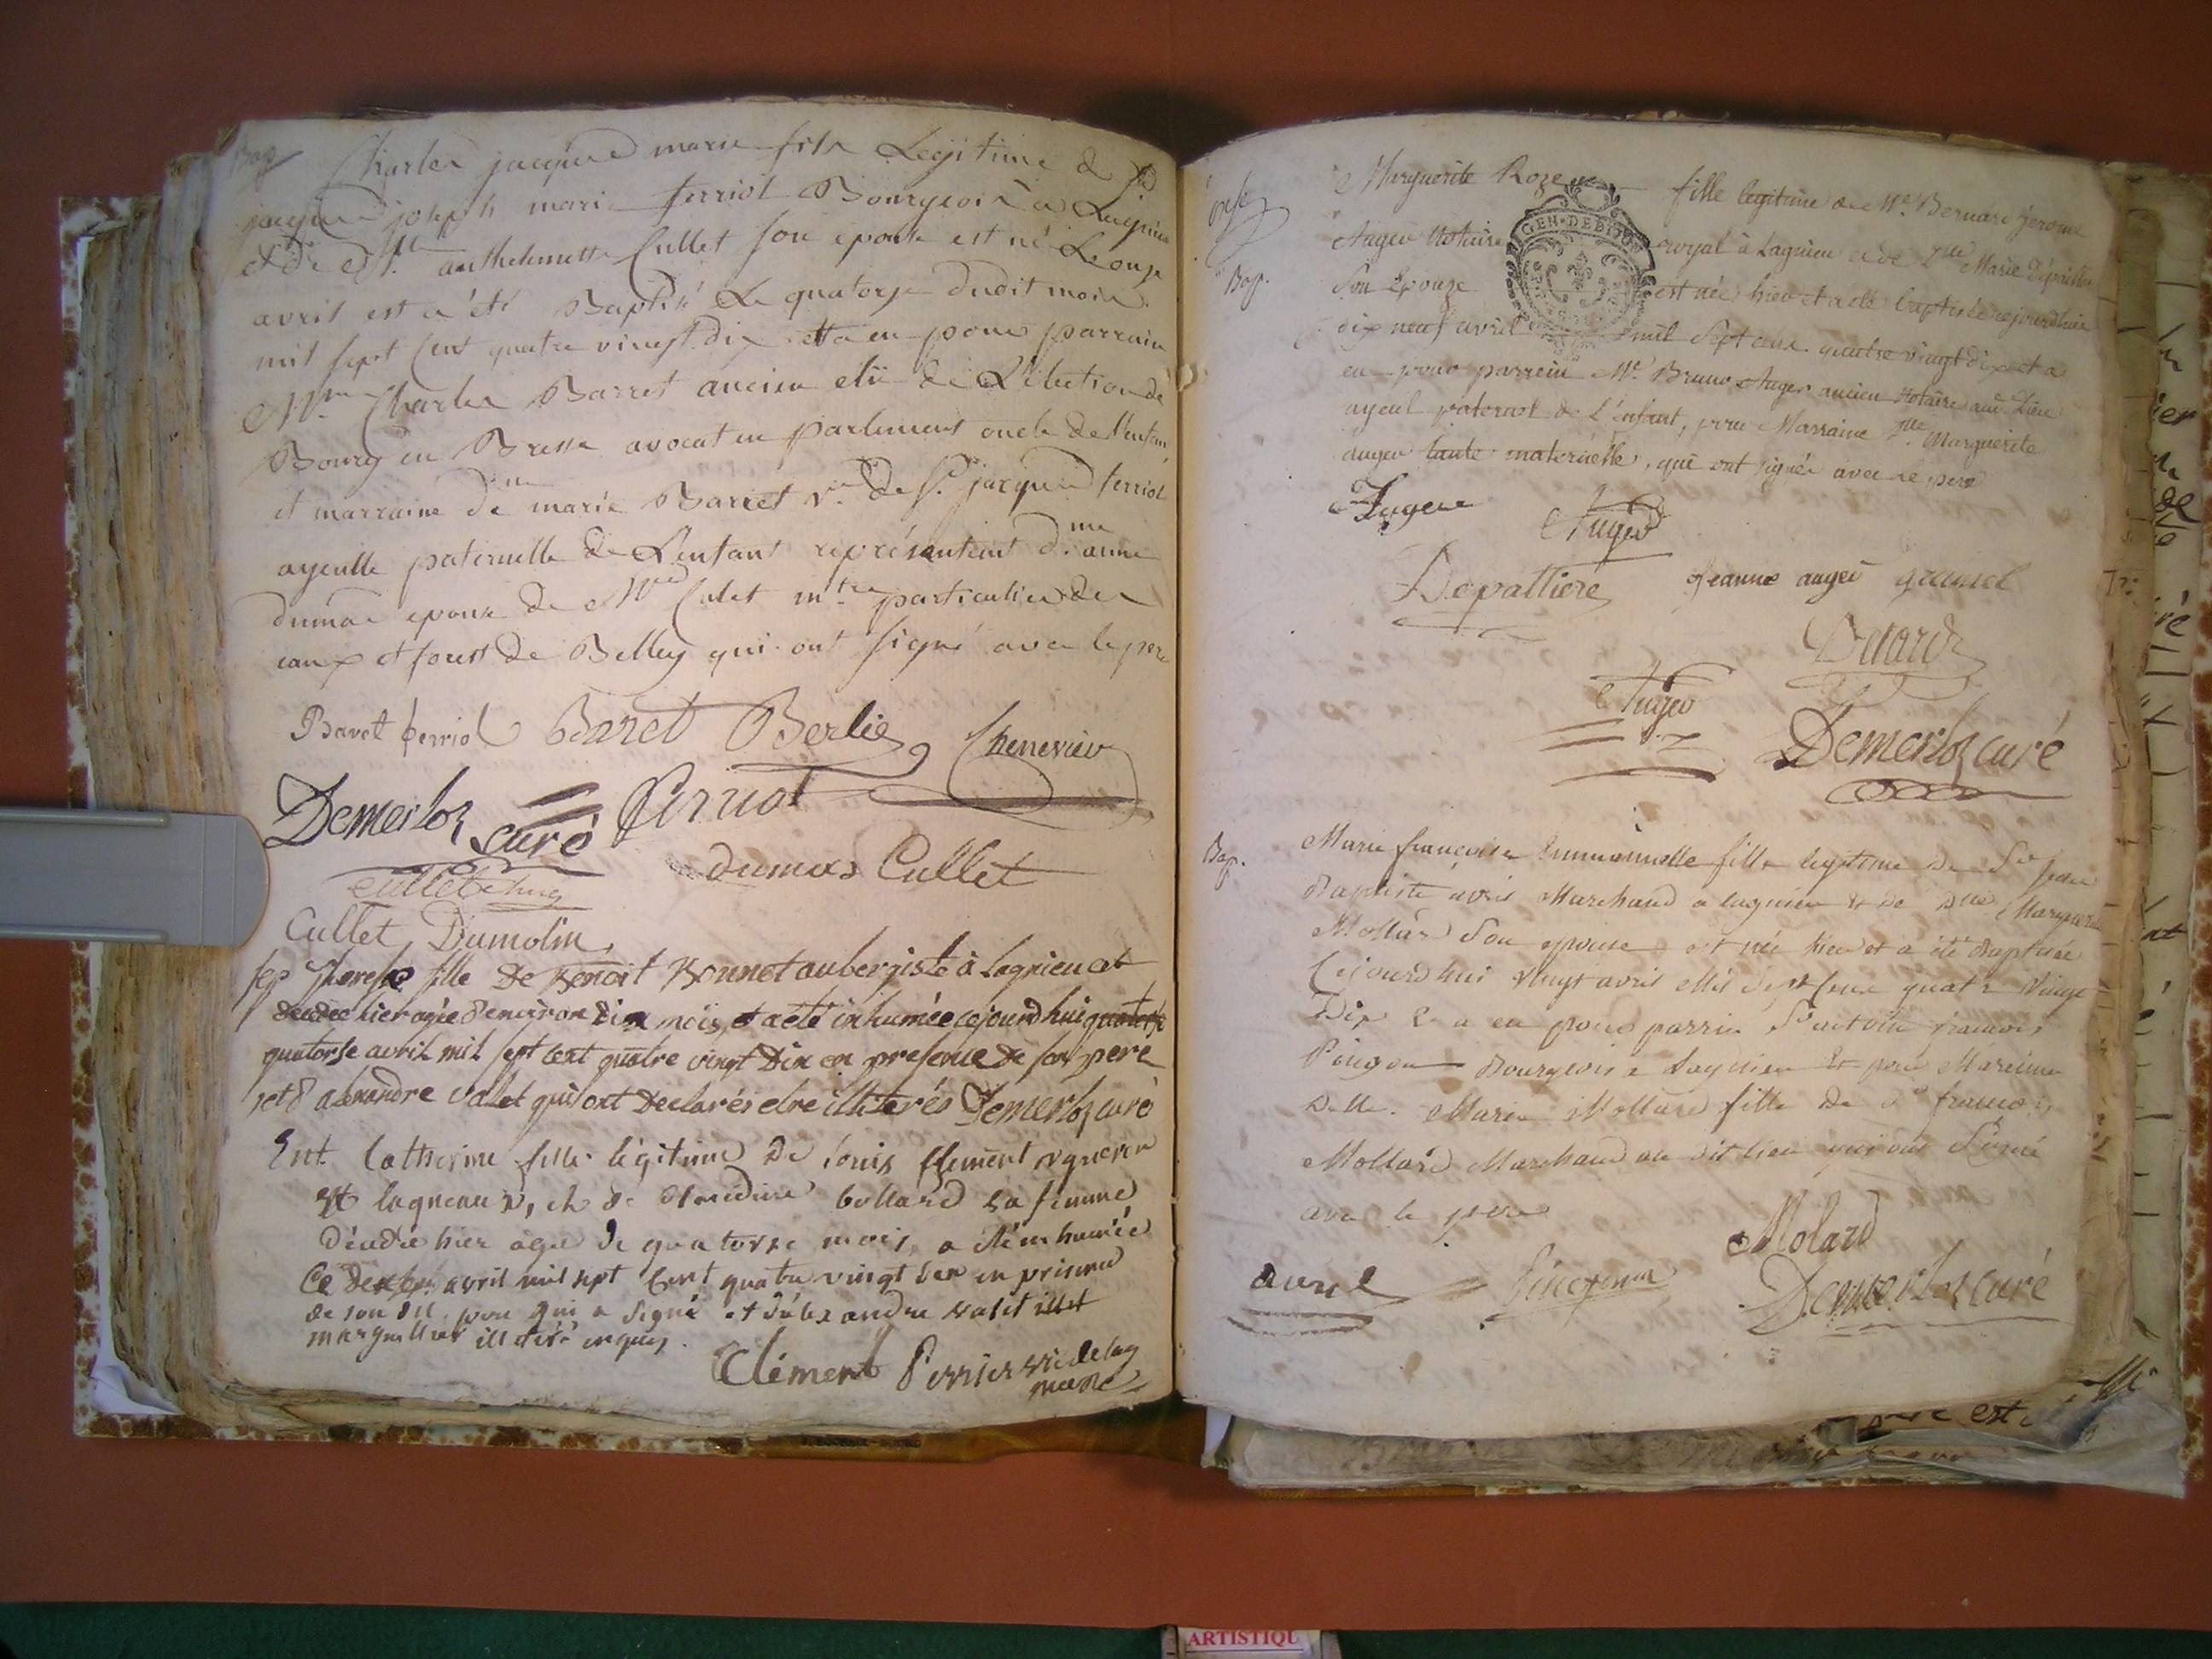 Bap
Charles jacques marie fils Legitime de Sr
jacques joseph marie ferriol Bourgeois a Lagnieu
et de anthelmette Cullet son epouse est né Le onze
avril est a été Baptisé Le quatorze dudit mois
mil sept cent quatre vingt dix et a eu pour parrain
Charles Barret ancien elü de L'élection de
Bourg en Bresse avocat en parlement oncle de l'enfan
et marraine dme marie Barret ve de sr jacques ferriol
ayeulle paternelle de L'enfant représentant dme anne
dumas epouse de Mre Culet mtre particulier des
eaux et forest de Belley qui ont signé avec le pere
Baret ferriol Baret Berlie Chenevier
Demerloz curé ferriol
dumas Cullet
Cullet Dumolin
sep therese fille De Benoit Bonnet aubergiste à Lagnieu et
decedee hier agée denviron dix mois, et a eté inhumée cejourdhui
quatorse avril mil sept cent quatre vingt Dix en presence de son peré
et d alexandre valet qui ont Declarés etre illiterés Demerloz curé
Ent. Catherine fille légitime De Louis Clement vigneron
et de Claudine bollard sa femme
décédée hier agée de quatorze mois, a été inhumée
Ce avril mil sept Cent quatre vingt dix en présence
de son dit pere qui a signé et d'alexandre valet
marguillier illiteré enquis.
Clément Perrier vic de lag
nieu
Bap.
Marguerite Roze fille legitime de Me Bernard jerome
Auger Notaire royal à Lagnieu et de Dlle Marie
Son Epouze est née hier et a été baptisée cejourdhui
dix neuf avril mil Sept cent quatre vingt dix et a
eu pour parrein Me Bruno Auger ancien Notaire aud. Lieu
ayeul paternel de L'enfant, pour Marraine Dlle Marguerite
auger tante maternelle, qui ont signés avec le pere
Auger Auger
Depattiere Jeanne auger
Auger
Demerloz curé
GEN. DE
Bap.
Marie françoise Emmanuelle fille legitime de Sr jean
Baptiste avril Marchand a lagnieu et de Dlle
Mollard Son epouse est née hier et a été Baptisée
Cejourdhui vingt avril Mil Sept Cent quatre Vingt
Dix Et a eu pour parrin Sr antoine francois
Bourgeois a Lagnieu Et pour Mareinne
Delle. Marie Mollard fille de Sr francois
Mollard Marchand au dit lieu qui ont Signé
avec le pere
Molard
avril Demerloz curé
ARTISTIQU